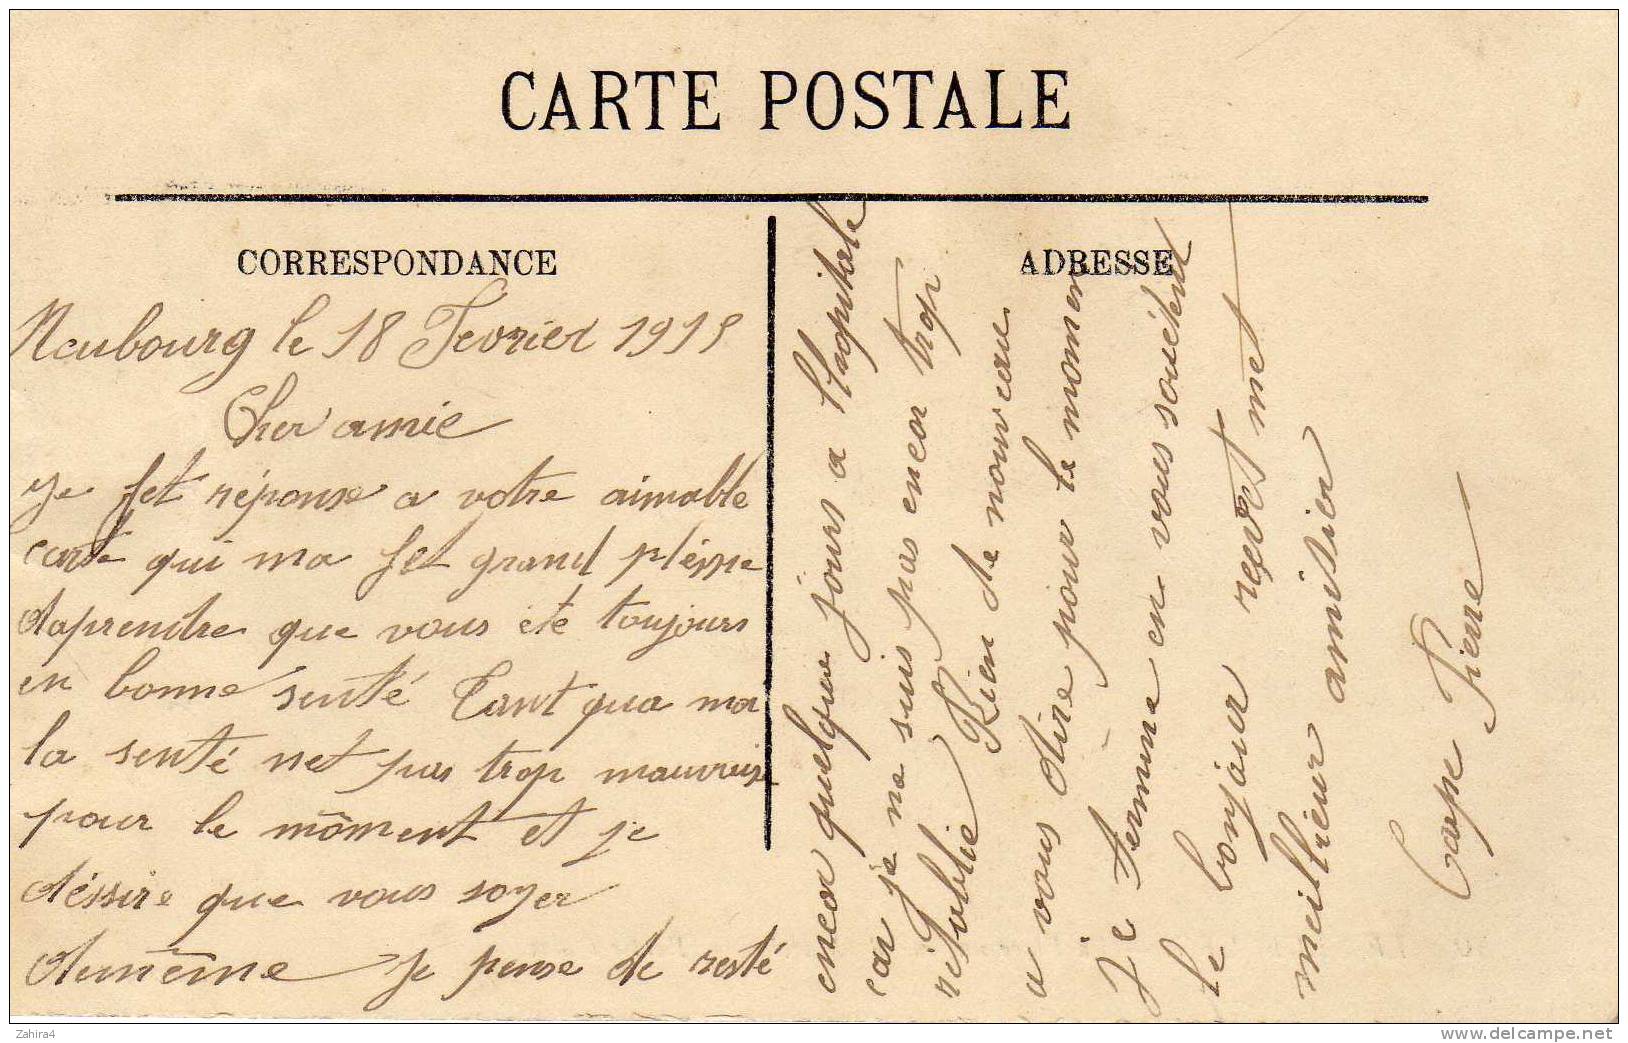 CARTE POSTALE
CORRESPONDANCE
ADRESSE
Neubourg le 18 Fevrier 1915
Cher amie
Je fet réponse a votre aimable
carte qui ma fet grand plésire
daprendre que vous ete toujours
en bonne senté Tant qua ma
la senté net pas trop mauvaise
pour le mòment et je
déssire que vous soyer
dumême Je pense de resté
encor quelque jours a lhopitale
car je ne suis pas encor trop
ritablie Rien de nouveau
a vous dire pour le momen
Je termine en vous souétent
le bonjour recevet met
meillieur amitier
Carpe Pierre
Zahira4
www.delcampe.net